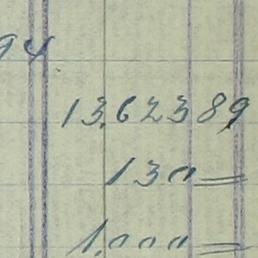 94
13,623 89
130 =
1,000 =